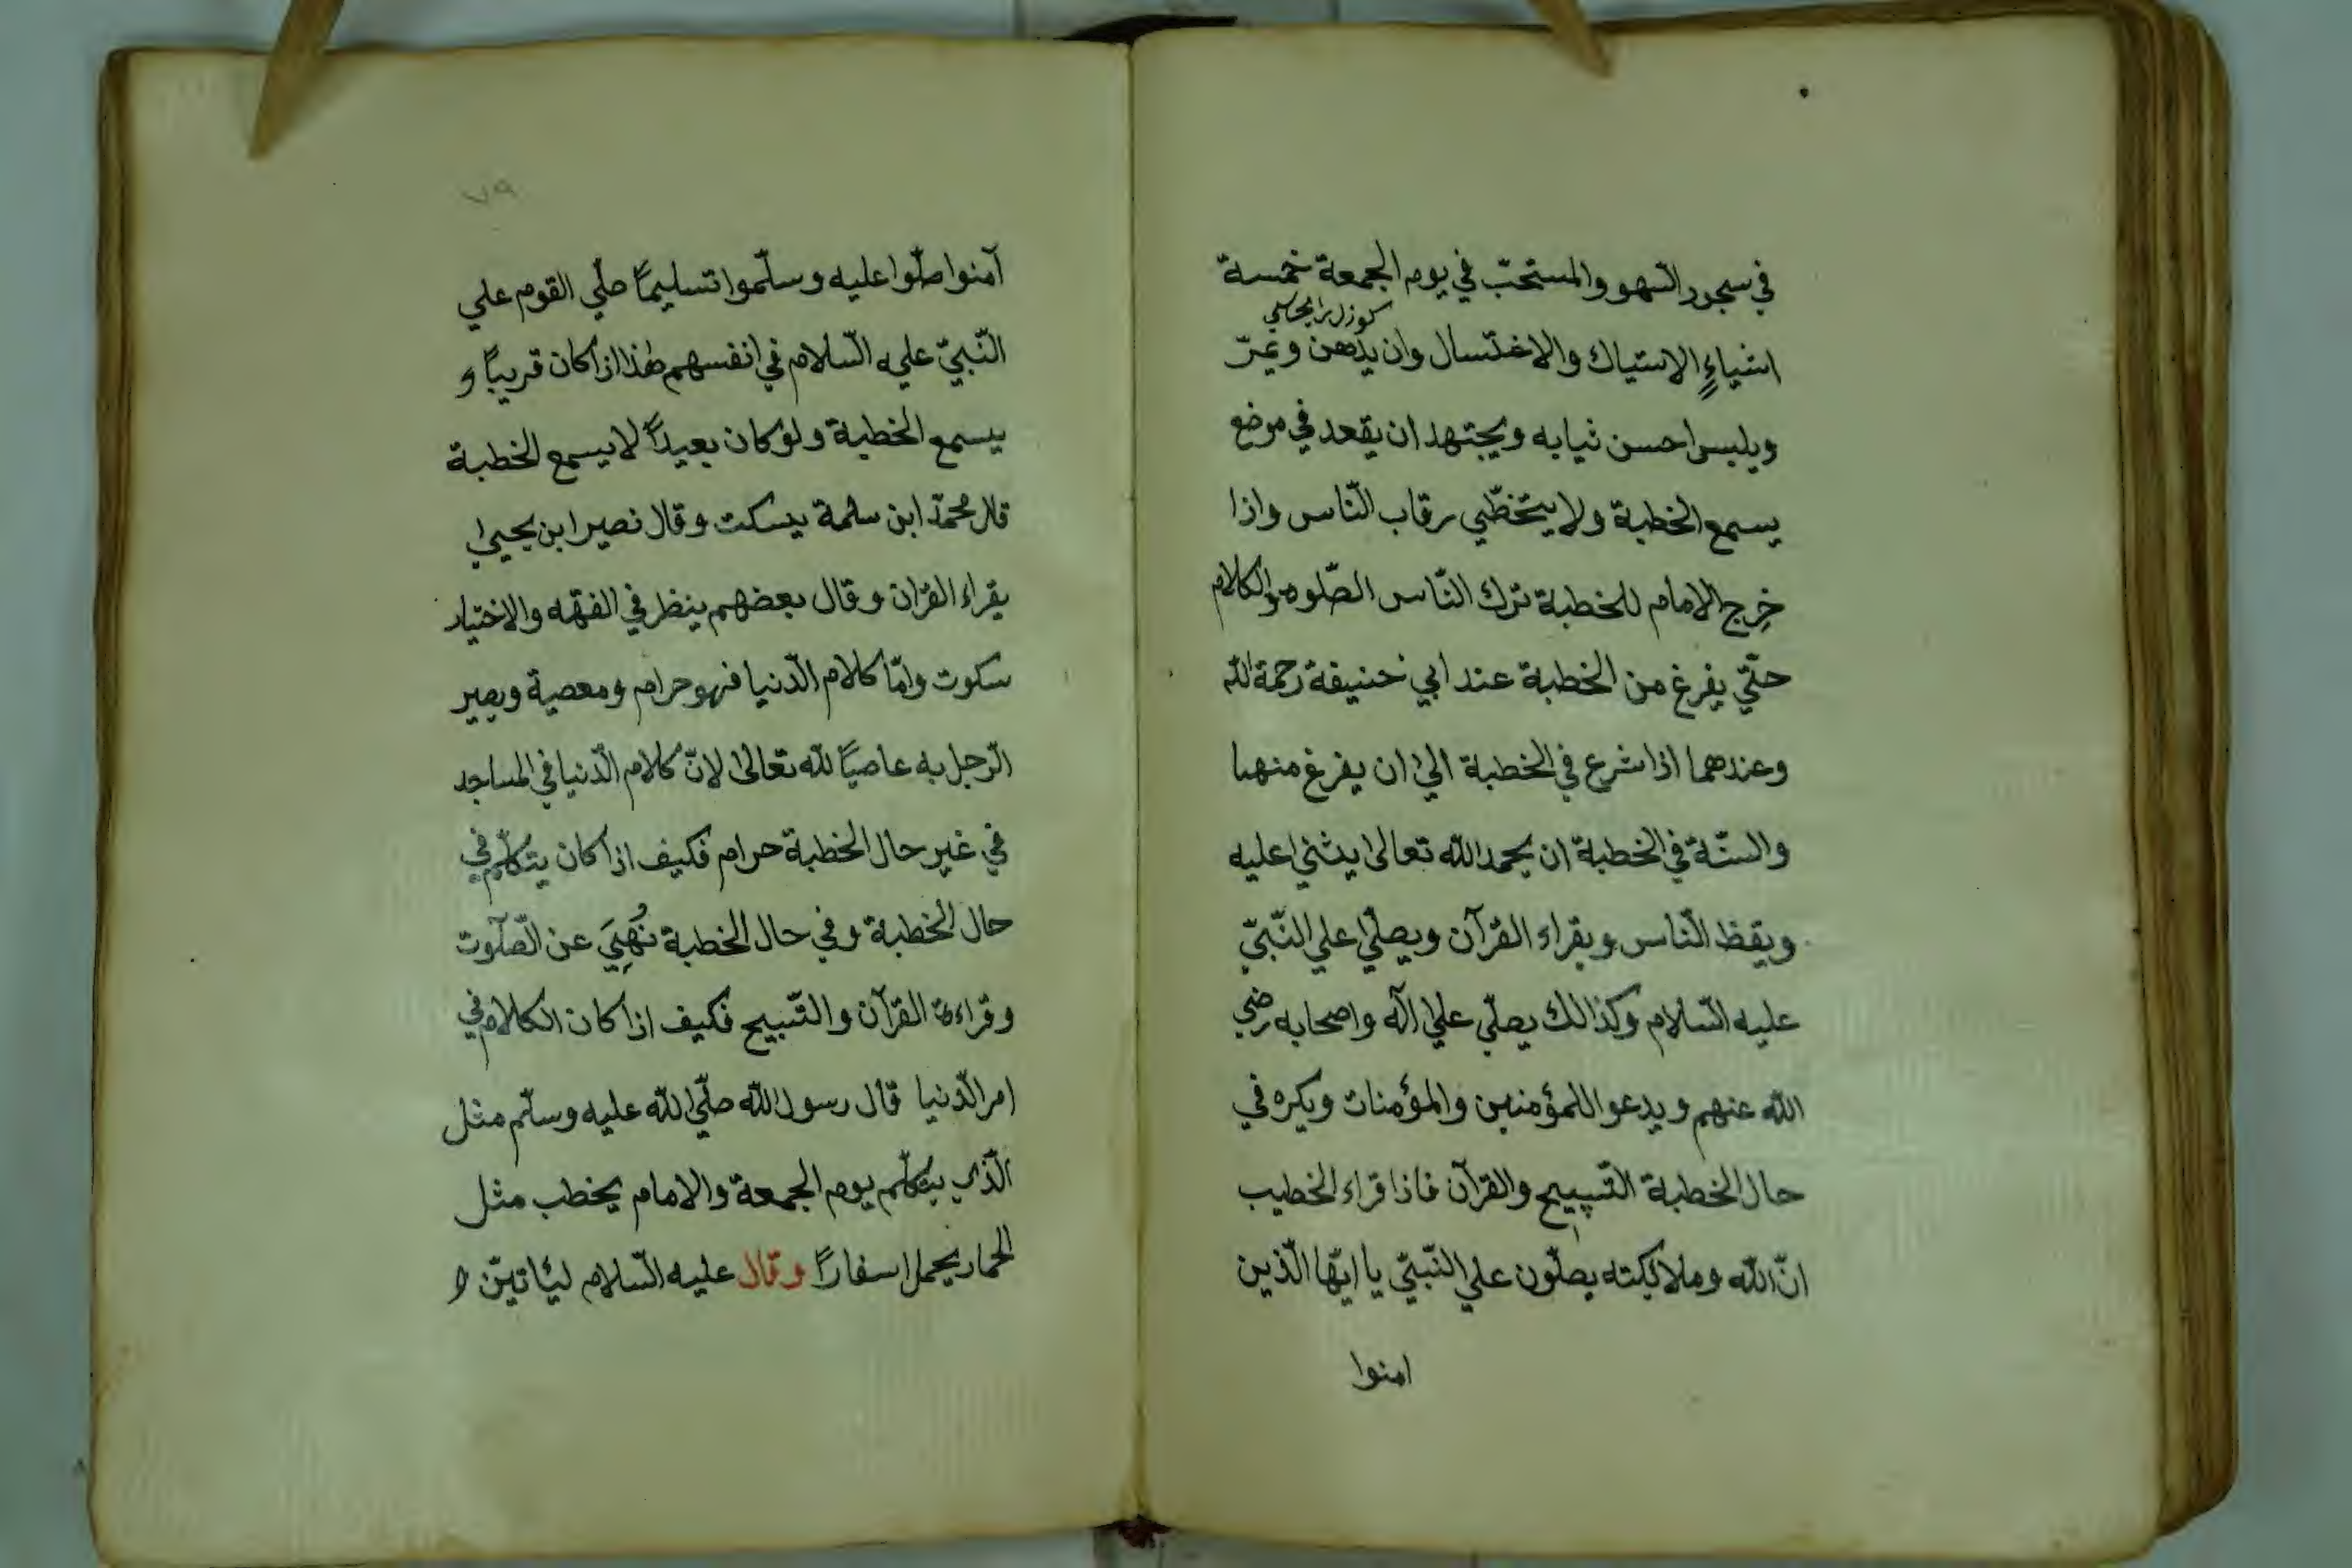 في سجود السّهو والمستحبّ في يوم الجمعة خمسة
اشياءٍ الاستياك والاغتسال وان يدهن ويمرّ
ويلبس احسن ثيابه ويجتهد ان يقعد في موضع
يسمع الخطبة ولا يتخطّي رقاب النّاس واذا
خرج الامام للخطبة ترك النّاس الصّلوة والكلام
حتّي يفرغ من الخطبة عند ابي حنيفة رحمة الله
وعندهما اذا شرع في الخطبة الي ان يفرغ منها
والسنّة في الخطبة ان يحمد الله تعالى يثني عليه
ويقظ النّاس ويقراء القرآن ويصلّي علي النّبيّ
عليه السّلام وكذالك يصلّي علي آله واصحابه رضي
الله عنهم ويدعوا للمؤمنين والمؤمنات ويكره في
حال الخطبة التّسبيح والقرآن فاذا قراء الخطيب
انّ الله وملائكته يصلّون علي النّبيّ يا ايّها الّذين
امنوا
٧٩
آمنوا صلّوا عليه وسلّموا تسليمًا صلّي القوم علي
النّبيّ عليه السّلام في انفسهم هذا اذا كان قريبًا و
يسمع الخطبة ولو كان بعيدًا لا يسمع الخطبة
قال محمّد ابن سلمة يسكت وقال نصير ابن يحيي
يقراء القرآن وقال بعضهم ينظر في الفقه والاختيار
سكوت وامّا كلام الدّنيا فهو حرام ومعصية ويصير
الرّجل به عاصيًا لله تعالى لانّ كلام الدّنيا في المساجد
في غير حال الخطبة حرام فكيف اذا كان يتكلّم في
حال الخطبة وفي حال الخطبة نُهِيَ عن الصّلوت
وقراءة القرآن والتّسبيح فكيف اذا كان الكلام في
امر الدّنيا قال رسول الله صلّي الله عليه وسلّم مثل
الّذي يتكلّم يوم الجمعة والامام يخطب مثل
الحمار يحمل اسفارًا وقال عليه السّلام ليأتينّ